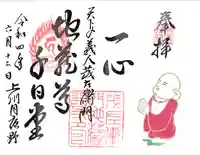 奉拝
一心
天下の義人茂左衛門
地蔵尊
千日堂
令和四年
六月十二日
上州月夜野